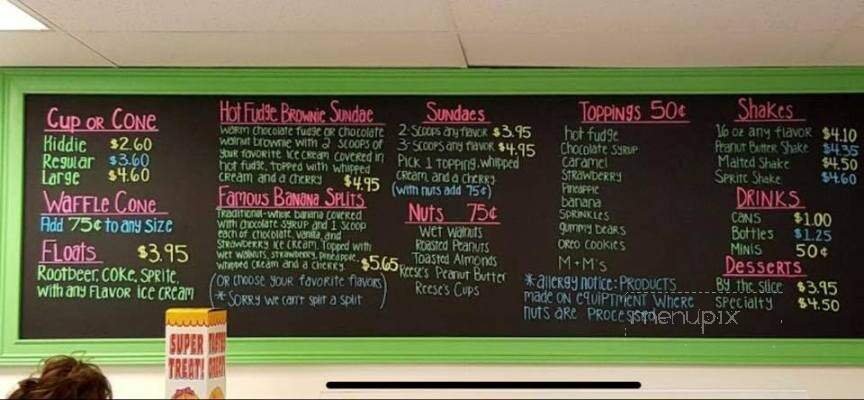 Cup or Cone
Kiddie $2.60
Regular $3.60
Large $4.60
Waffle Cone
Add 75¢ to any size
Floats $3.95
Rootbeer, Coke, Sprite,
with any flavor ice cream
Hot Fudge Brownie Sundae
Warm chocolate fudge or chocolate
walnut brownie with 2 scoops of
your favorite ice cream covered in
hot fudge, topped with whipped
cream and a cherry $4.95
Famous Banana Splits
Traditional-whole banana covered
with chocolate syrup and 1 scoop
each of chocolate, vanilla, and
strawberry ice cream. Topped with
wet walnuts, strawberry, pineapple,
whipped cream and a cherry. $5.65
(or choose your favorite flavors)
*Sorry we can't split a split
Sundaes
2-scoops any flavor $3.95
3-scoops any flavor $4.95
Pick 1 topping, whipped
cream, and a cherry
(with nuts add 75¢)
Nuts 75¢
Wet Walnuts
Roasted Peanuts
Toasted Almonds
Reese's Peanut Butter
Reese's Cups
Toppings 50¢
hot fudge
Chocolate syrup
caramel
Strawberry
Pineapple
banana
Sprinkles
gummy bears
Oreo cookies
M+M's
*allergy notice: Products
made on equiptment where
nuts are processed
Shakes
16 oz any flavor $4.10
Peanut Butter Shake $4.35
Malted Shake $4.50
Sprite Shake $4.60
Drinks
Cans $1.00
Bottles $1.25
Minis 50¢
Desserts
By the slice $3.95
Specialty $4.50
menupix
SUPER
TREAT!